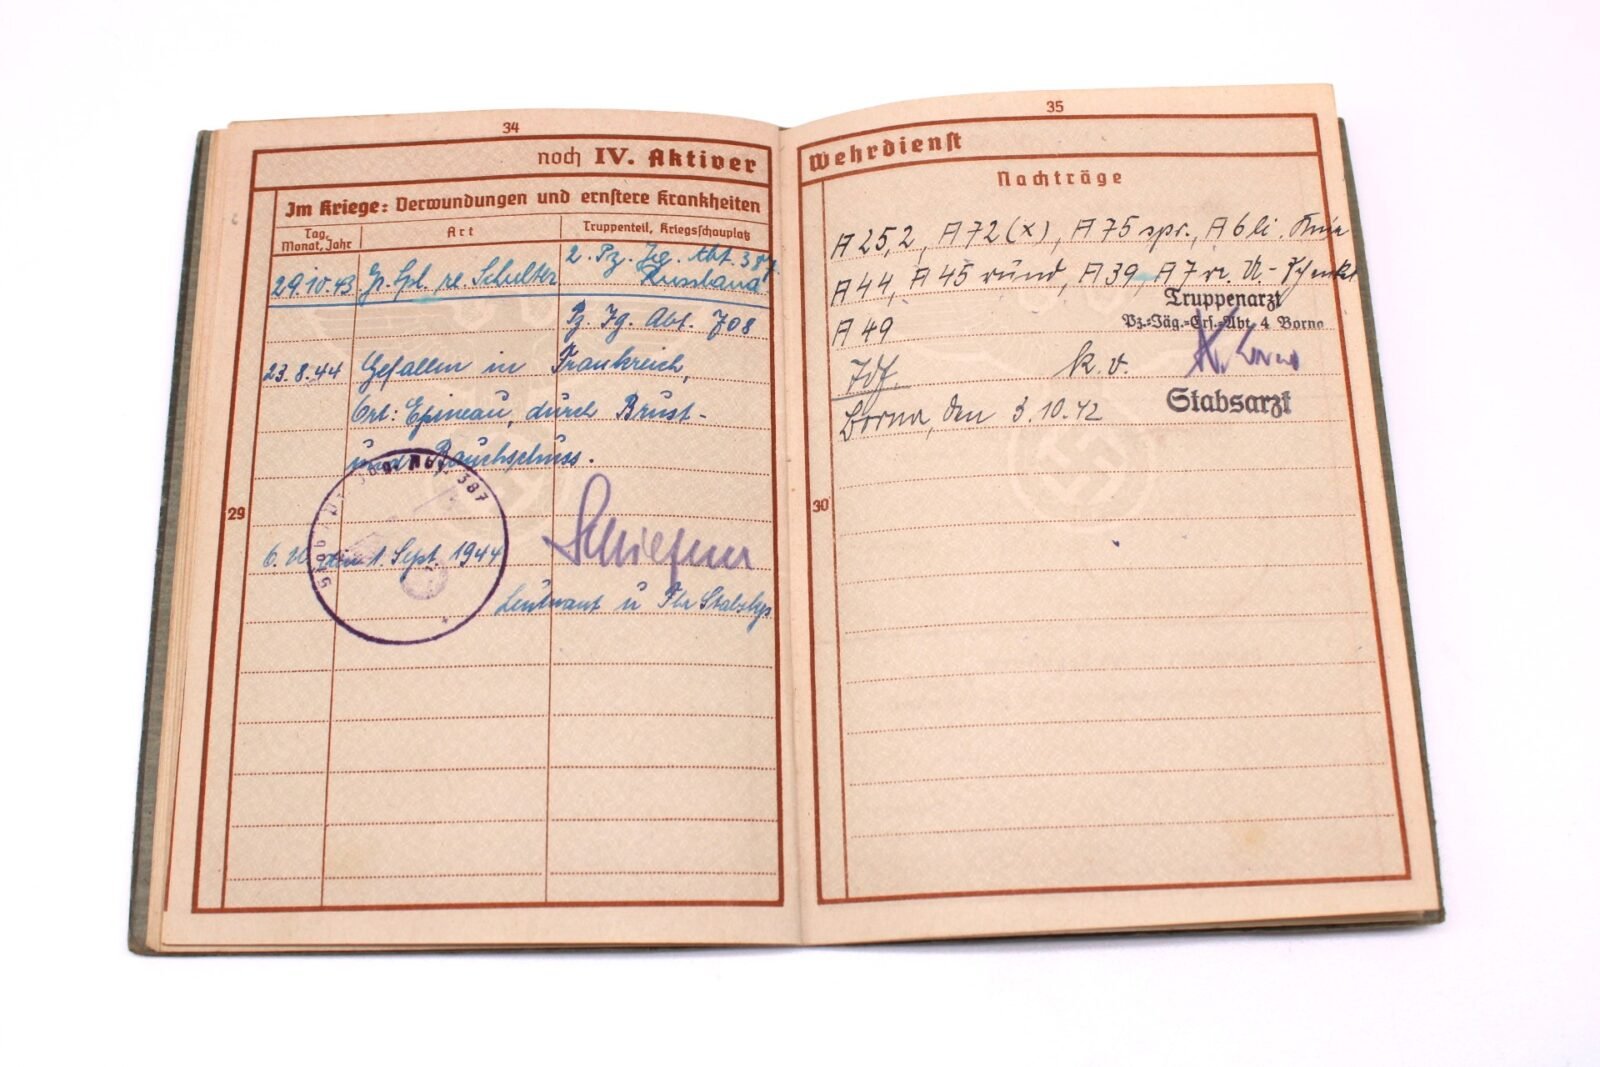 34
noch IV. Aktiver
Im Kriege: Verwundungen und ernstere Krankheiten
Tag, Monat, Jahr
Art
Truppenteil, Kriegsschauplatz
29.10.43 Gr. Spl. re. Schulter
2. Pz. Jg. Abt. 387
Russland
Pz Jg. Abt. 708
23.8.44 Gefallen in Frankreich,
Ort: Epineau, durch Brust-
und Bauchschuss.
29
387
1. Sept. 1944
Leutnant u
35
Wehrdienst
Nachträge
A 25,2, A 72 (x), A 75 spr., A 6 li.
A 44, A 45 rund, A 39, A 7 re. U-Schenkel
A 49
Truppenarzt
Pz.=Jäg.=Ers.=Abt. 4 Borna
k. v.
Stabsarzt
Borna, den 3.10.42
30